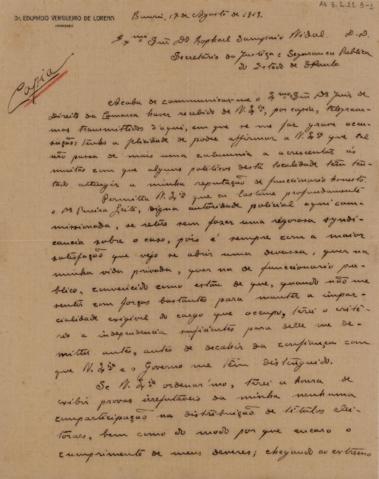 Dr. EDUARDO VERGUEIRO DE LORENA
Bananal, 17 de Agosto de 1913.
Exmo Snr. Dr. Raphael Sampaio Vidal. D. D.
Secretario da Justiça e Segurança Publica
do Estado de S. Paulo
Copia
Acaba de communicar-me o Exmo Snr. Dr. Juiz de
Direito da Comarca haver recebido de V. Excia, por copia, telegram-
mas transmittidos d'aqui, em que se me faz graves accu-
sações; tenho a felicidade de poder affirmar a V. Excia que tal
não passa de mais uma calumnia a accrescentar ás
muitas com que alguns politicos desta localidade têm ten-
tado attingir a minha reputação de funccionario honesto.
Permitta V. Excia que eu lastime profundamente
o Dr. Pereira Leite, digna autoridade policial aqui com-
missionada, se retire sem fazer uma rigorosa syndi-
cancia sobre o caso, pois é sempre com a maior
satisfação que vejo se abrir uma devassa, quer na
minha vida privada, quer na de funccionario pu-
blico, convencido como estou de que, quando não me
sentir com forças bastantes para manter a impar-
cialidade exigivel do cargo que occupo, terei o crite-
rio e independencia sufficientes para delle me de-
mittir antes, antes de decahir da confiança com
que V. Excia e o Governo me têm distinguido.
Se V. Excia ordenar-mo, terei a honra de
exibir provas irrefutaveis da minha nenhuma
comparticipação na distribuição de titulos elei-
toraes, bem como do modo por que encaro o
cumprimento de meus deveres; chegando ao extremo